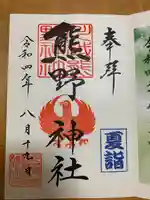 奉拝
熊野神社
夏詣
令和四年八月十九日